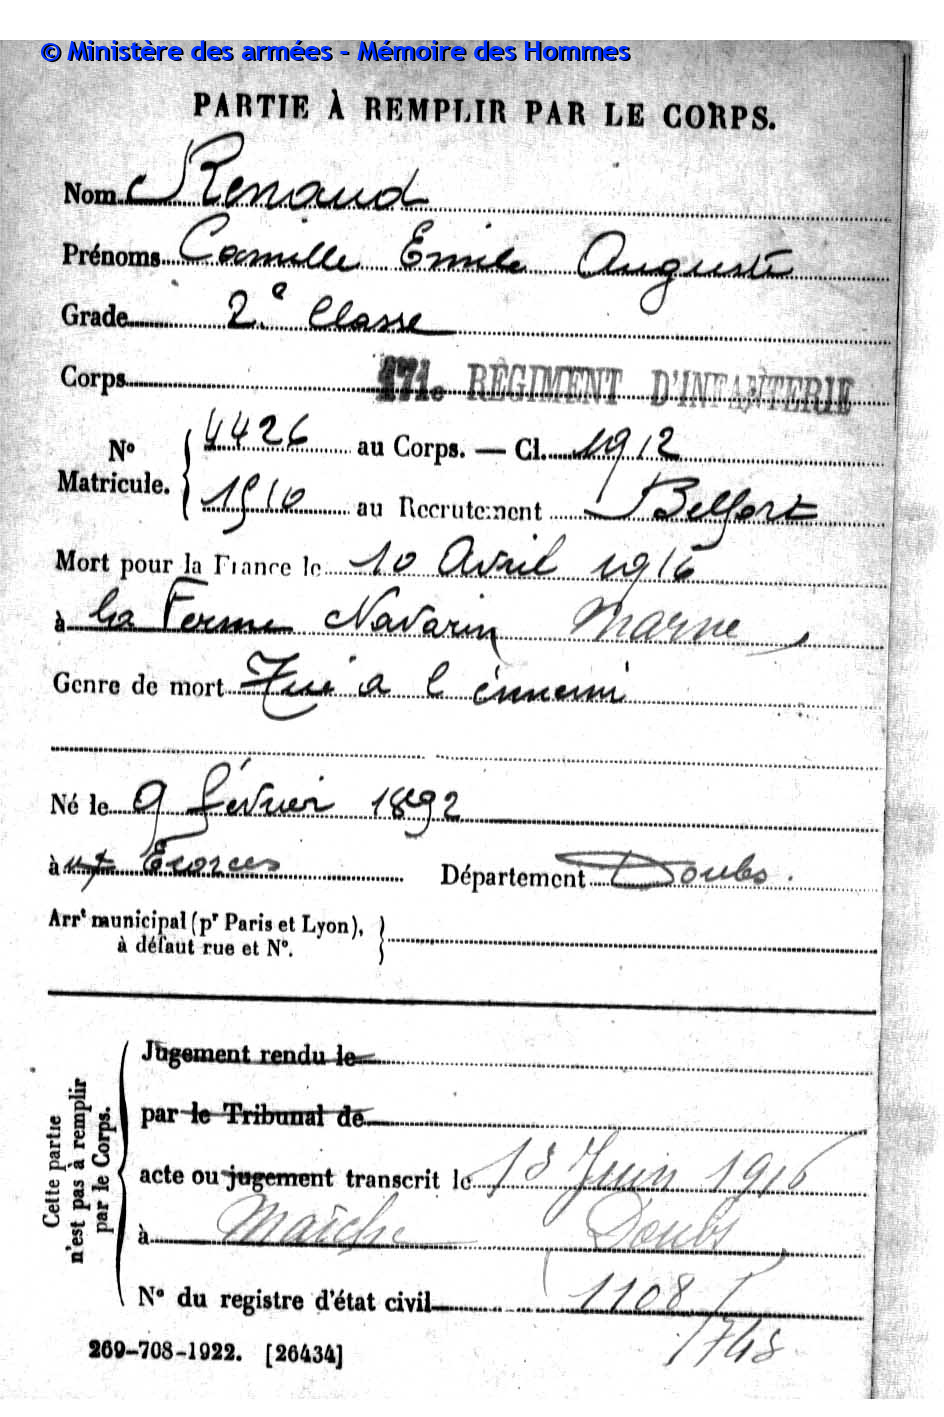 © Ministère des armées - Mémoire des Hommes
PARTIE À REMPLIR PAR LE CORPS.
Nom Renaud
Prénoms Camille Emile Auguste
Grade 2.e Classe
Corps 171e RÉGIMENT D'INFANTERIE
No Matricule. { 4426 au Corps. — Cl. 1912
1510 au Recrutement Belfort
Mort pour la France le 10 Avril 1916
à la Ferme Navarin Marne
Genre de mort Tué a l'énnemi
Né le 9 février 1892
à ux Ecorces Département Doubs.
Arrt municipal (pr Paris et Lyon),
à défaut rue et No. }
Cette partie
n'est pas à remplir
par le Corps.
Jugement rendu le
par le Tribunal de
acte ou jugement transcrit le 13 Juin 1916
à Maîche Doubs
No du registre d'état civil 1108
1748
269-708-1922. [26434]